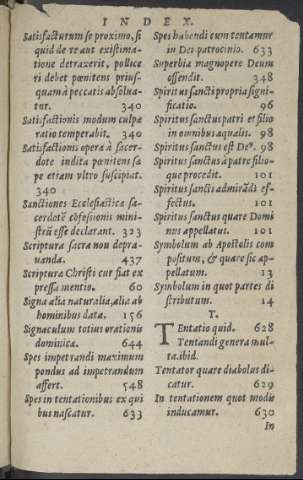 INDEX.
Satisfacturum se proximo, si
quid de re aut existima-
tione detraxerit, pollice
ri debet pœnitens prius-
quam à peccatis absolua-
tur. 340
Satisfactionis modum culpæ
ratio temperabit. 340
Satisfactionis opera à sacer-
dote indita pœnitens sæ
pe etiam vltro suscipiat.
340
Sanctiones Ecclesiasticæ sa-
cerdotē cōfesionis mini-
strū esse declarant. 323
Scriptura sacra nou depra-
uanda. 437
Scripturæ Christi cur fiat ex
pressa mentio. 60
Signa alia naturalia, alia ab
hominibus data. 156
Signaculum totius orationis
dominicæ. 644
Spes impetrandi maximum
pondus ad impetrandum
affert. 548
Spes in tentationibus ex qui
bus nascatur. 633
Spes habendi cum tentamur
in Dei patrocinio. 633
Superbia magnopere Deum
offendit. 348
Spiritus sancti propria signi-
ficatio. 96
Spiritus sanctus patri et filio
in omnibus æqualis. 98
Spiritus sanctus est Deꝰ. 98
Spiritus sanctus à patre filio-
que procedit. 101
Spiritus sancti admirādi ef-
fectus. 101
Spiritus sanctus quare Domi
nus appellatus. 101
Symbolum ab Apostolis com
positum, & quare sic ap-
pellatum. 13
Symbolum in quot partes di
stributum. 14
T.
TEntatio quid. 628
Tentandi genera mul-
ta. ibid.
Tentator quare diabolus di-
catur. 629
In tentationem quot modis
inducamur. 630
In